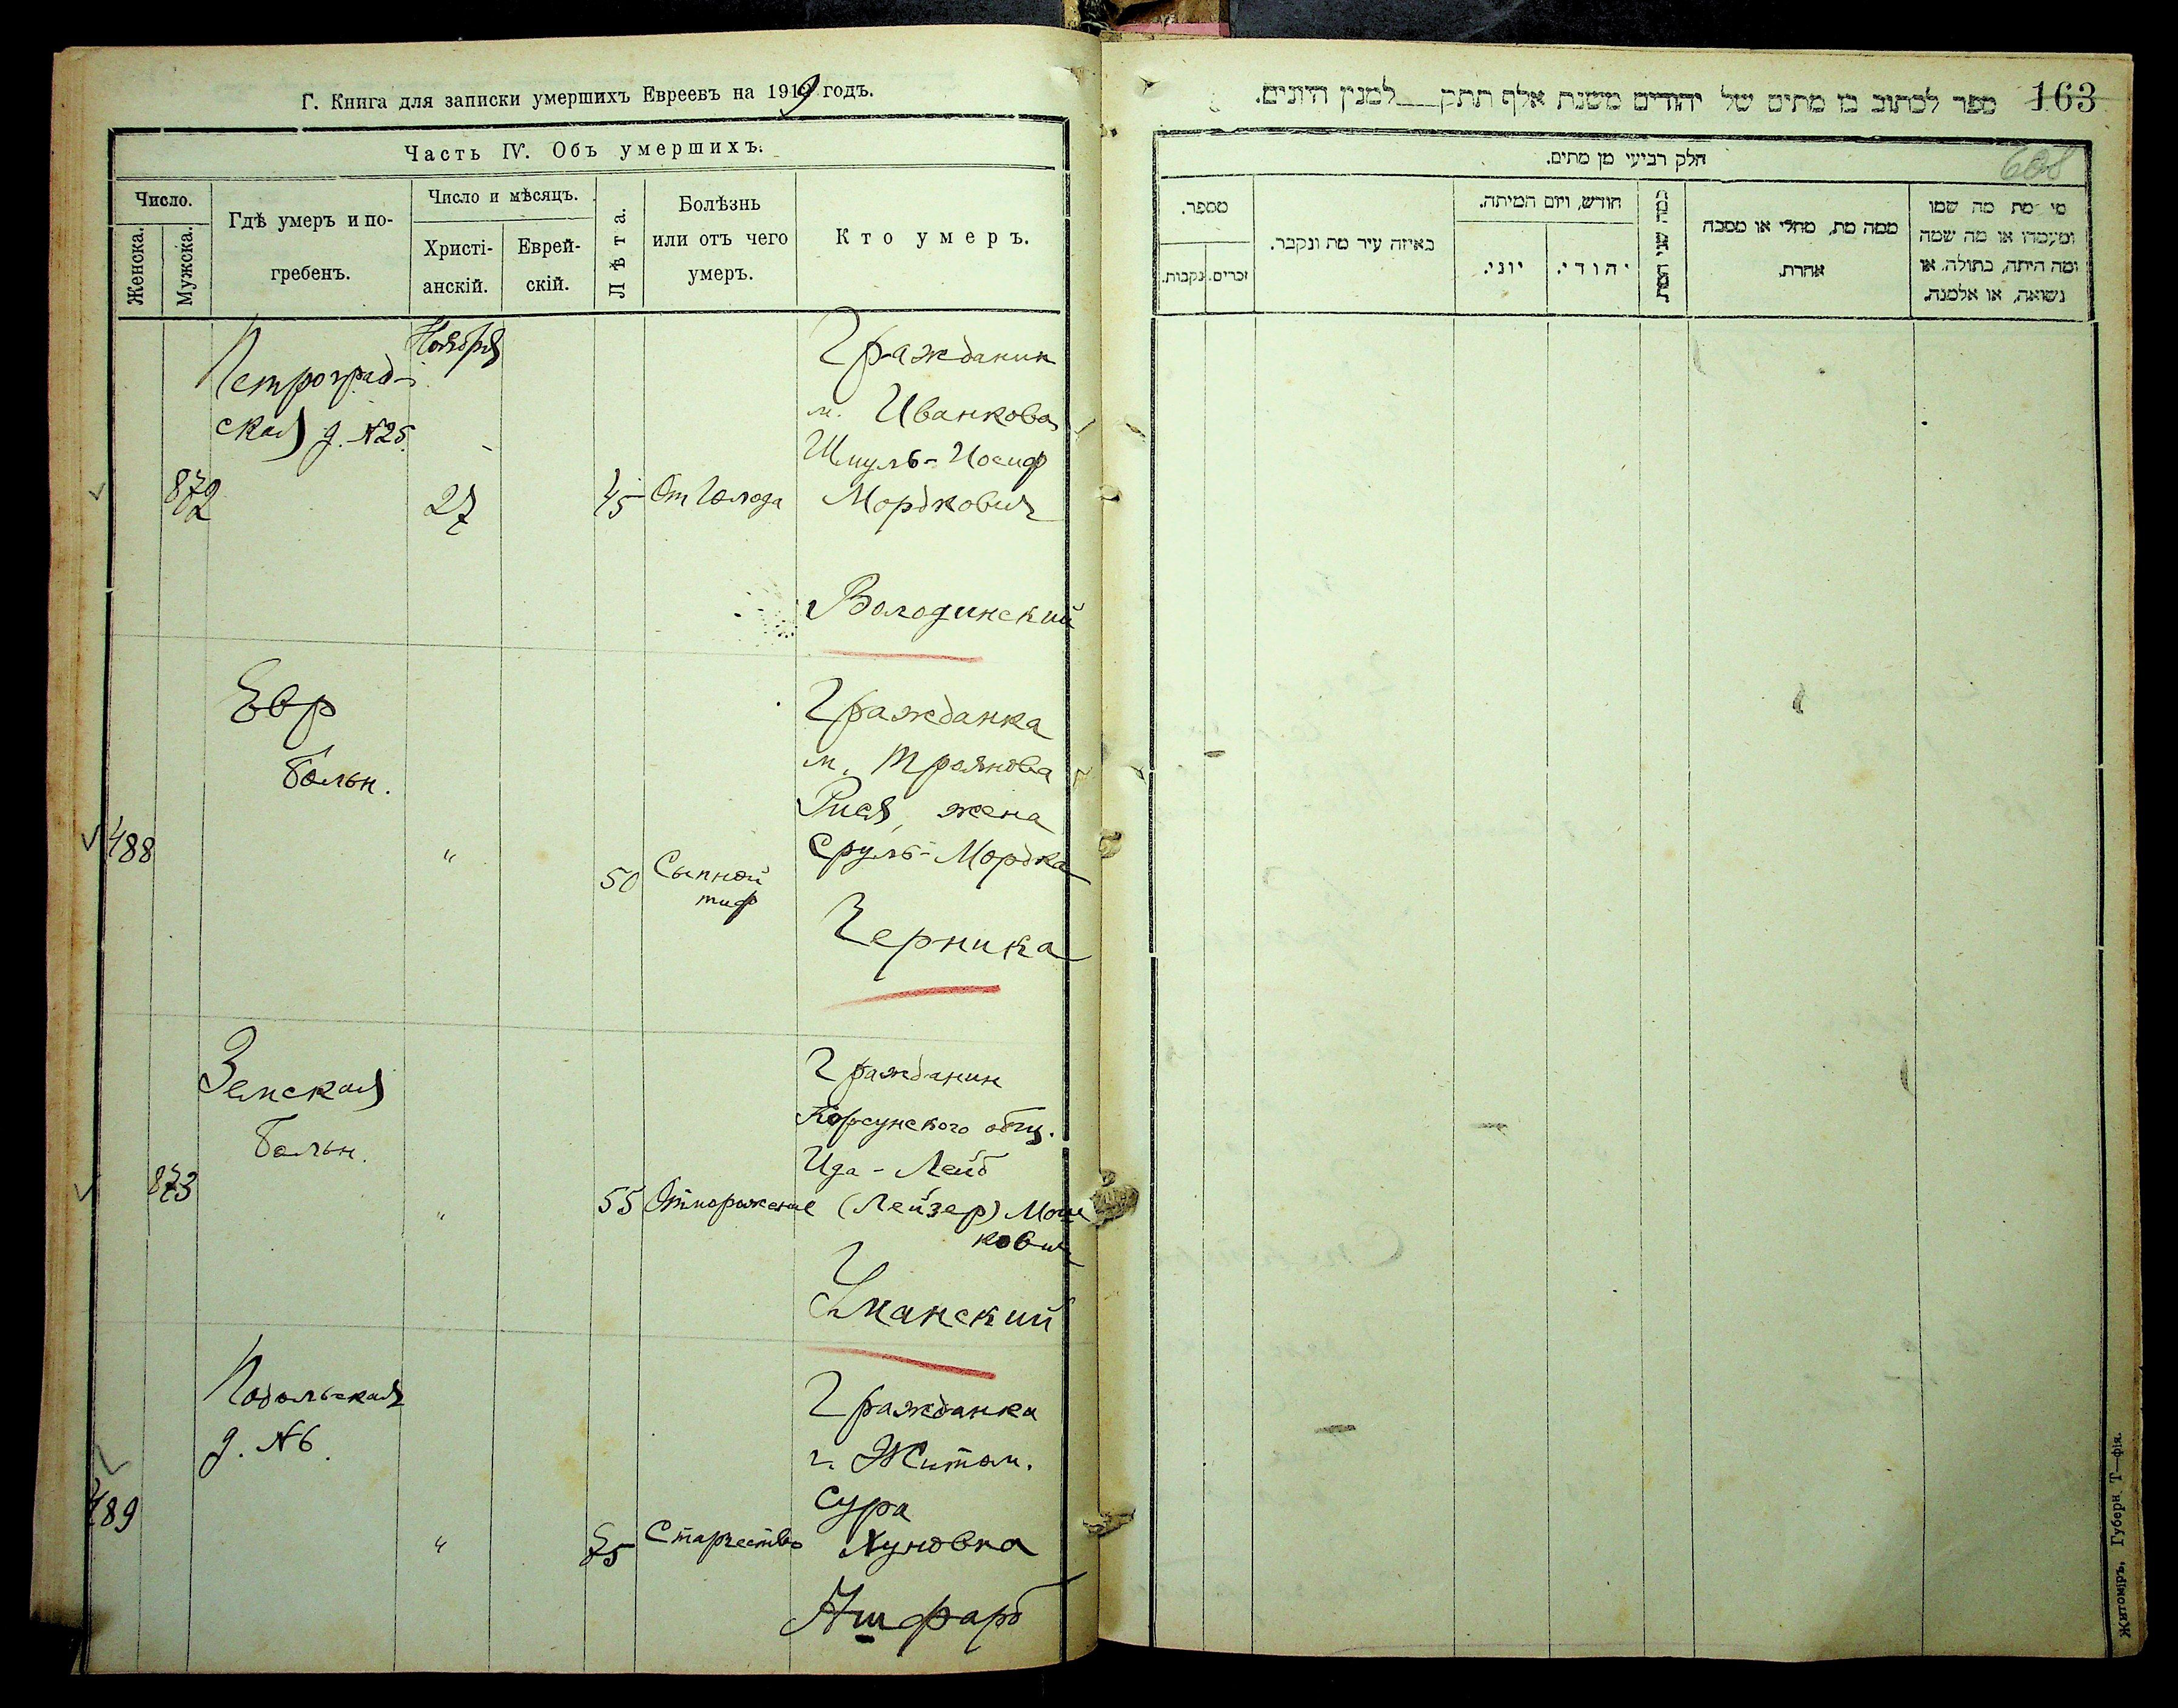 Г. Книга для записки умершихъ Евреевъ на 1919 годъ.
Часть IV. Объ умершихъ.
Число.
Женска.
Мужска.
Гдѣ умеръ и по-
гребенъ.
Число и мѣсяцъ.
Христі-
анскій.
Еврей-
скій.
Лѣта.
Болѣзнь
или отъ чего
умеръ.
Кто умеръ.
Петроград-
ская д. №25.
Ноября
872
27
45
От голода
Гражданин
м. Иванкова
Шмуль-Иосиф
Мордкович
Володинский
Евр
больн.
488
"
50
Сыпной
тиф
Гражданка
м. Троянова
Рися, жена
Сруль-Мордка
Черника
Земская
больн.
873
"
55
Отморожение
Гражданин
Корсунского общ.
Ида-Лейб
(Лейзер) Мош
кович
Уманский
Подольская
д. №6.
489
"
75
Старчество
Гражданка
г. Житом.
Сура
Хуновна
Ашфарб
163
ספר לכתוב בו מתים של יהודים משנת אלף תתק___למנין היונים.
608
חלק רביעי מן מתים.
מספר.
זכרים.
נקבות.
באיזה עיר מת ונקבר.
חודש, ויום המיתה.
יוני.
יהודי.
כמה שני המת
ממה מת, מחלי או מסבה
אחרת.
מי מת מה שמו
ומעמדו או מה שמה
ומה היתה, בתולה, או
נשואה, או אלמנה.
Житоміръ, Губерн Т—фія.